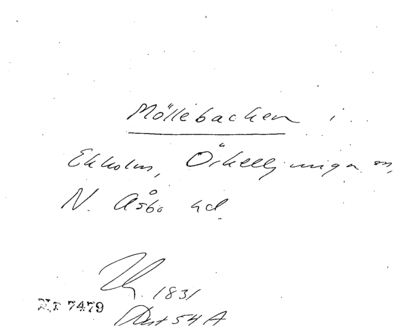 Möllebacken i
Ekholm, Örkelljunga sn,
N. Åsbo hd.
1831
Nr 7479
54 A